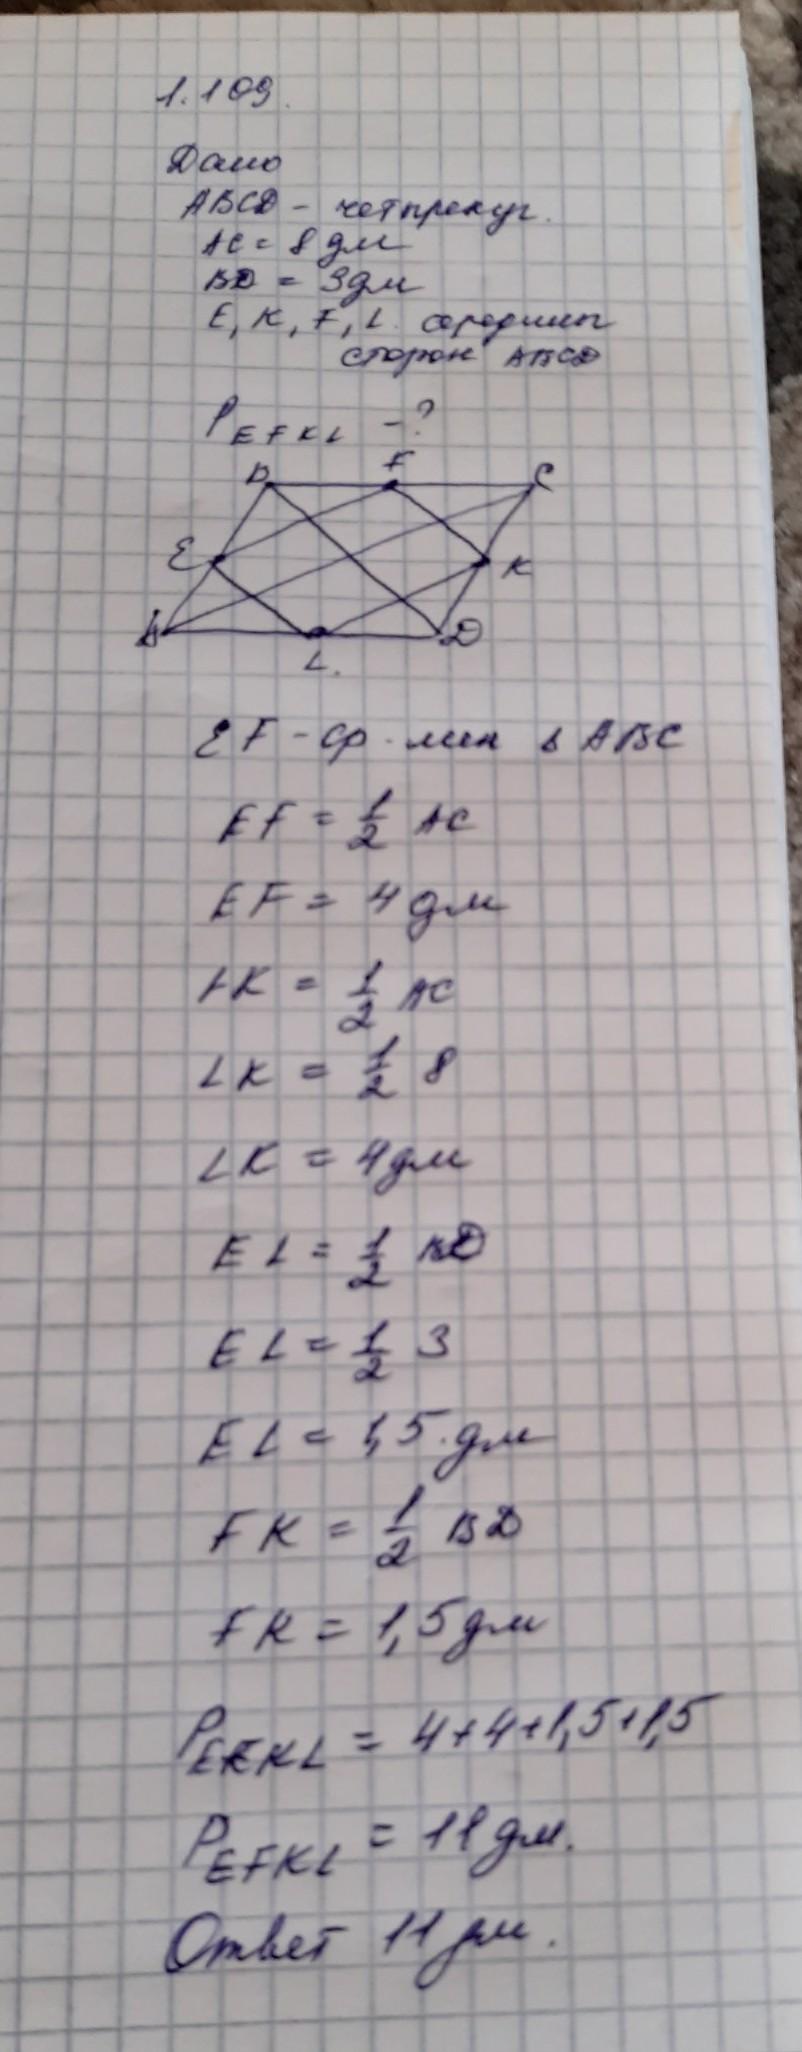 1.109.
Дано
ABCD - четырехуг.
AC = 8 дм
BD = 3 дм
E, K, F, L. середины
сторон ABCD
P EFKL - ?
B F C
E K
A L. D
EF - ср. лин Δ ABC
EF = 1/2 AC
EF = 4 дм
LK = 1/2 AC
LK = 1/2 8
LK = 4 дм
EL = 1/2 BD
EL = 1/2 3
EL = 1,5 дм
FK = 1/2 BD
FK = 1,5 дм
P EFKL = 4+4+1,5+1,5
P EFKL = 11 дм.
Ответ 11 дм.